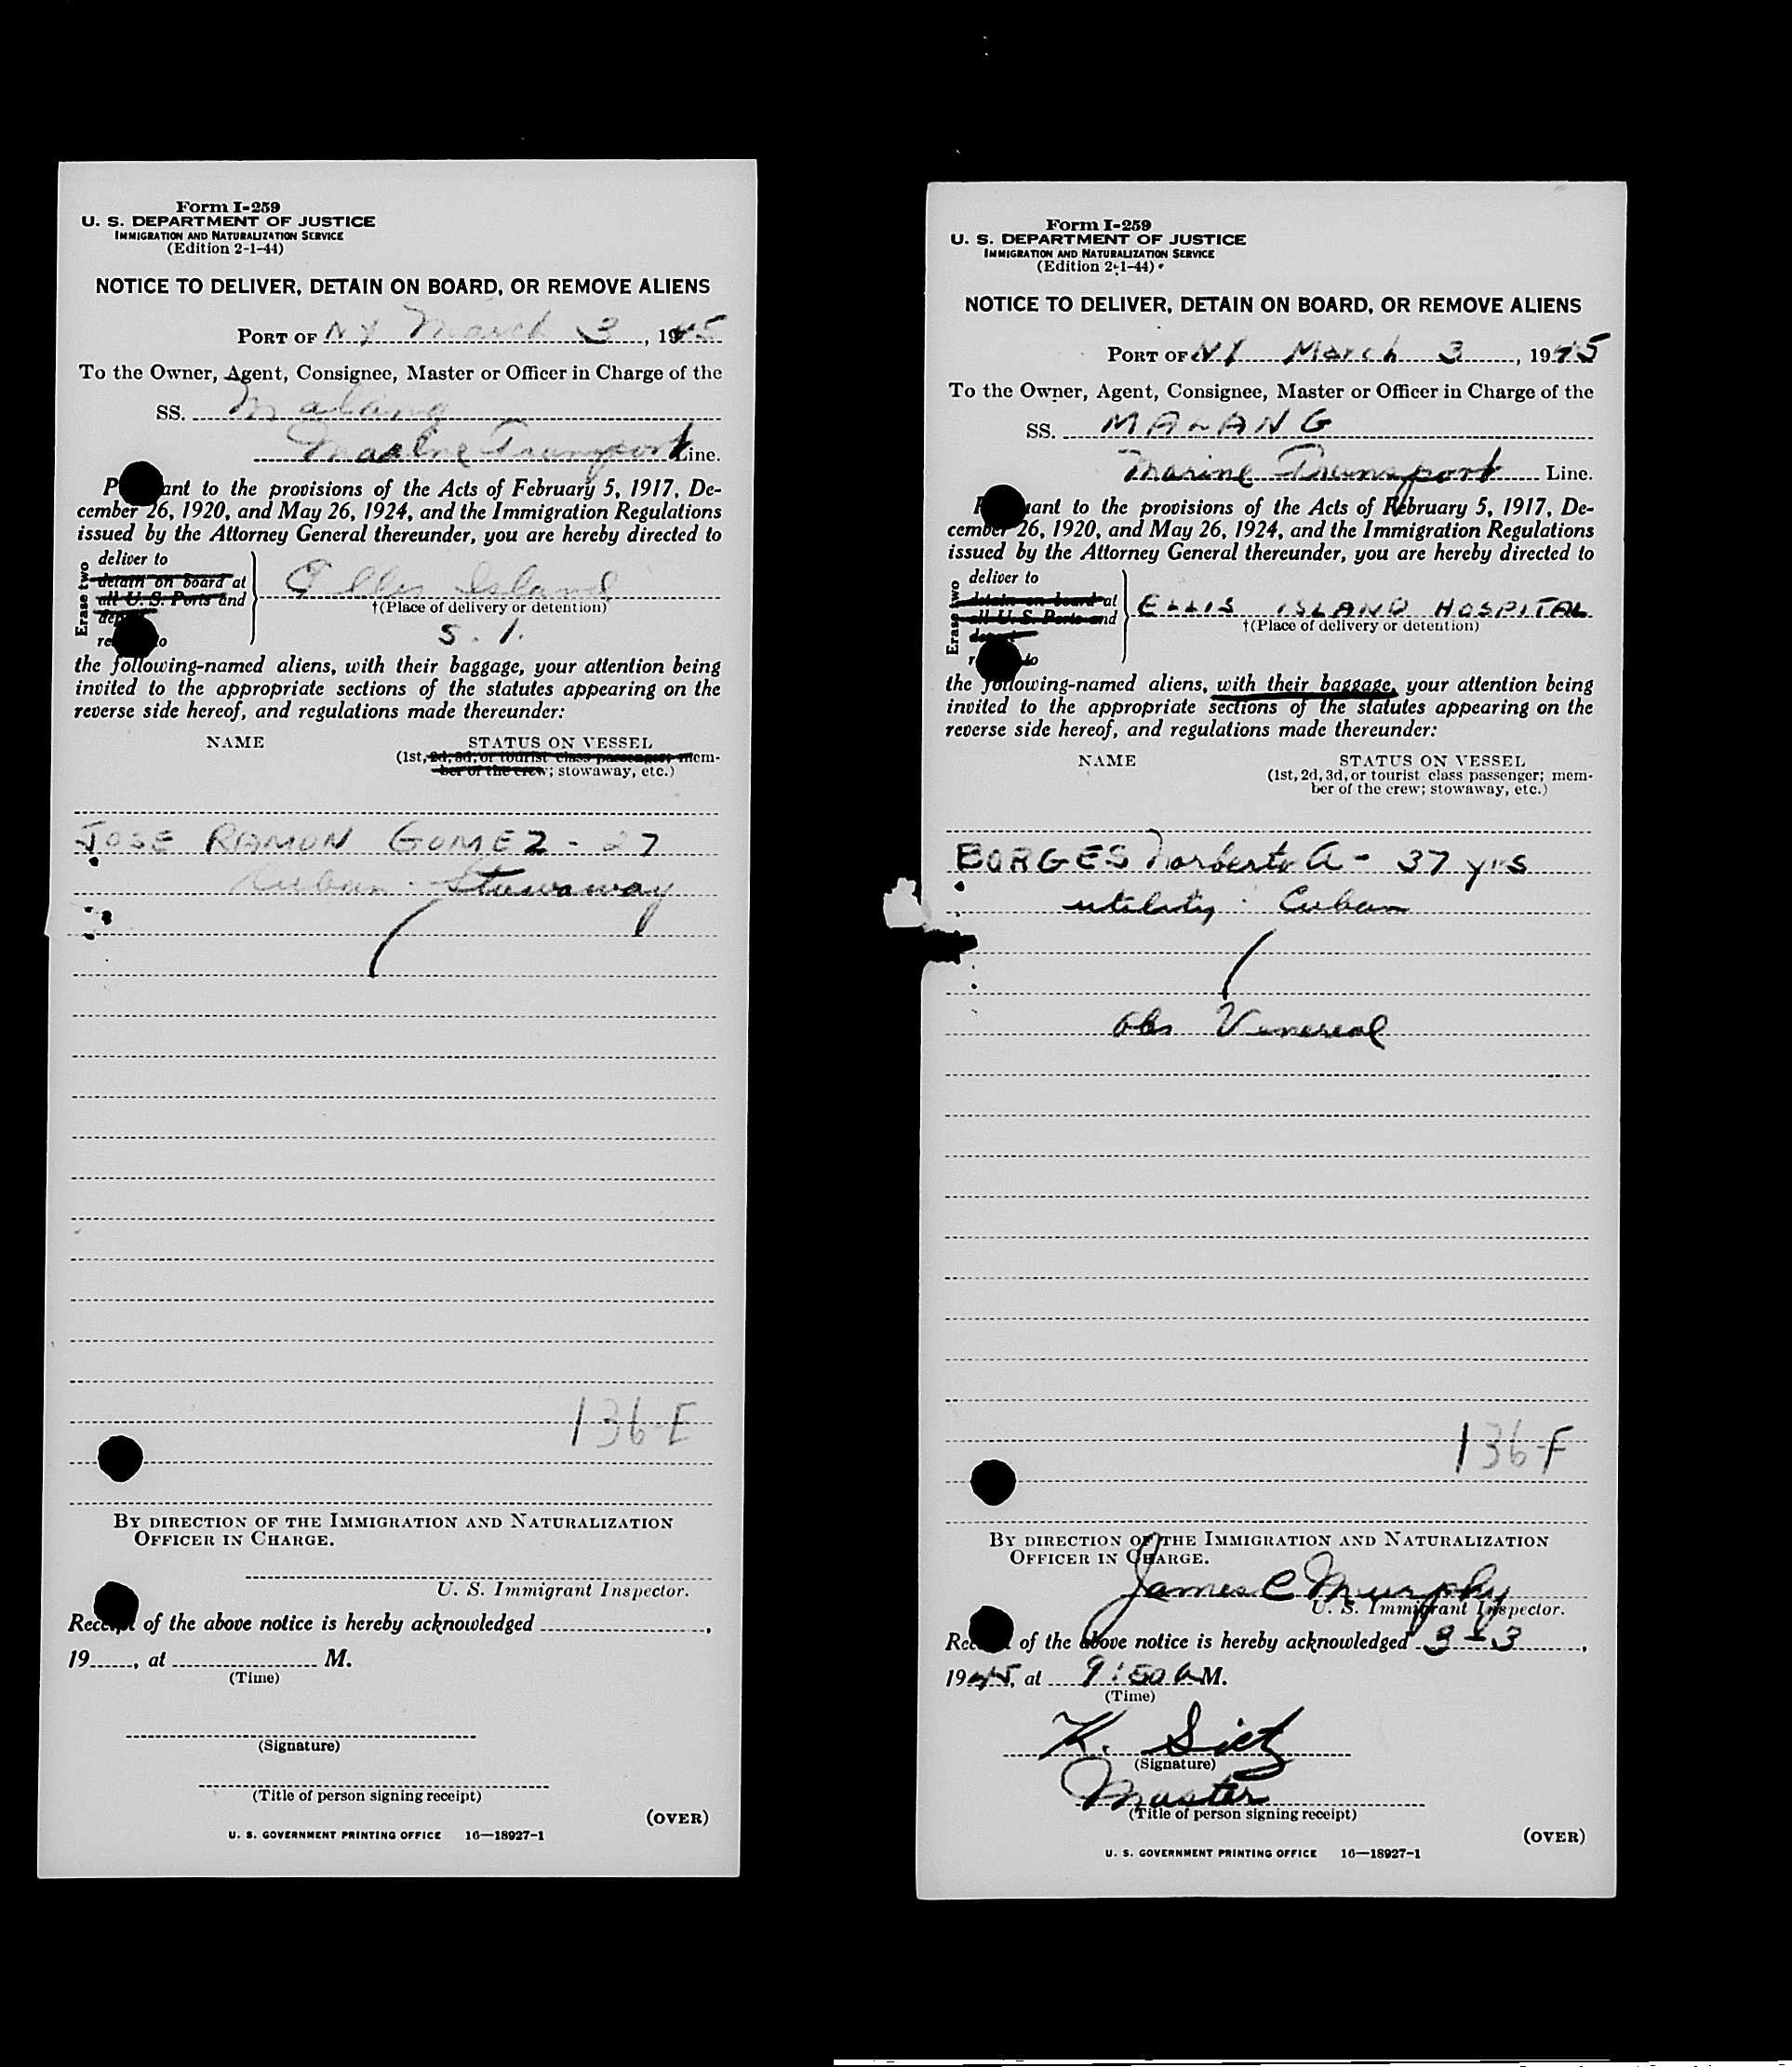 Form I-259
U. S. DEPARTMENT OF JUSTICE
IMMIGRATION AND NATURALIZATION SERVICE
(Edition 2-1-44)
NOTICE TO DELIVER, DETAIN ON BOARD, OR REMOVE ALIENS
PORT OF NY March 3, 1945
To the Owner, Agent, Consignee, Master or Officer in Charge of the
SS. Malang
Marine Transport Line.
P ant to the provisions of the Acts of February 5, 1917, De-
cember 26, 1920, and May 26, 1924, and the Immigration Regulations
issued by the Attorney General thereunder, you are hereby directed to
Erase two
deliver to
detain on board at
all U. S. Ports and
dep
re o
Ellis Island
†(Place of delivery or detention)
S. I.
the following-named aliens, with their baggage, your attention being
invited to the appropriate sections of the statutes appearing on the
reverse side hereof, and regulations made thereunder:
NAME STATUS ON VESSEL
(1st, 2d, 3d, or tourist class passenger; mem-
ber of the crew; stowaway, etc.)
JOSE RAMON GOMEZ - 27
Cuban - Stowaway
136-E
BY DIRECTION OF THE IMMIGRATION AND NATURALIZATION
OFFICER IN CHARGE.
U. S. Immigrant Inspector.
Receipt of the above notice is hereby acknowledged ,
19 , at M.
(Time)
(Signature)
(Title of person signing receipt)
(OVER)
U. S. GOVERNMENT PRINTING OFFICE 16—18927-1
Form I-259
U. S. DEPARTMENT OF JUSTICE
IMMIGRATION AND NATURALIZATION SERVICE
(Edition 2-1-44)
NOTICE TO DELIVER, DETAIN ON BOARD, OR REMOVE ALIENS
PORT OF NY March 3, 1945
To the Owner, Agent, Consignee, Master or Officer in Charge of the
SS. MALANG
Marine Transport Line.
P ant to the provisions of the Acts of February 5, 1917, De-
cember 26, 1920, and May 26, 1924, and the Immigration Regulations
issued by the Attorney General thereunder, you are hereby directed to
Erase two
deliver to
detain on board at
all U. S. Ports and
depart
r to
ELLIS ISLAND HOSPITAL
†(Place of delivery or detention)
the following-named aliens, with their baggage, your attention being
invited to the appropriate sections of the statutes appearing on the
reverse side hereof, and regulations made thereunder:
NAME STATUS ON VESSEL
(1st, 2d, 3d, or tourist class passenger; mem-
ber of the crew; stowaway, etc.)
BORGES Norberto A - 37 yrs
utility · Cuban
obs Venereal
136-F
BY DIRECTION OF THE IMMIGRATION AND NATURALIZATION
OFFICER IN CHARGE.
James C Murphy
U. S. Immigrant Inspector.
Rec of the above notice is hereby acknowledged 3-3,
1945, at 9:50 A M.
(Time)
K. Siet
(Signature)
Master
(Title of person signing receipt)
(OVER)
U. S. GOVERNMENT PRINTING OFFICE 16—18927-1